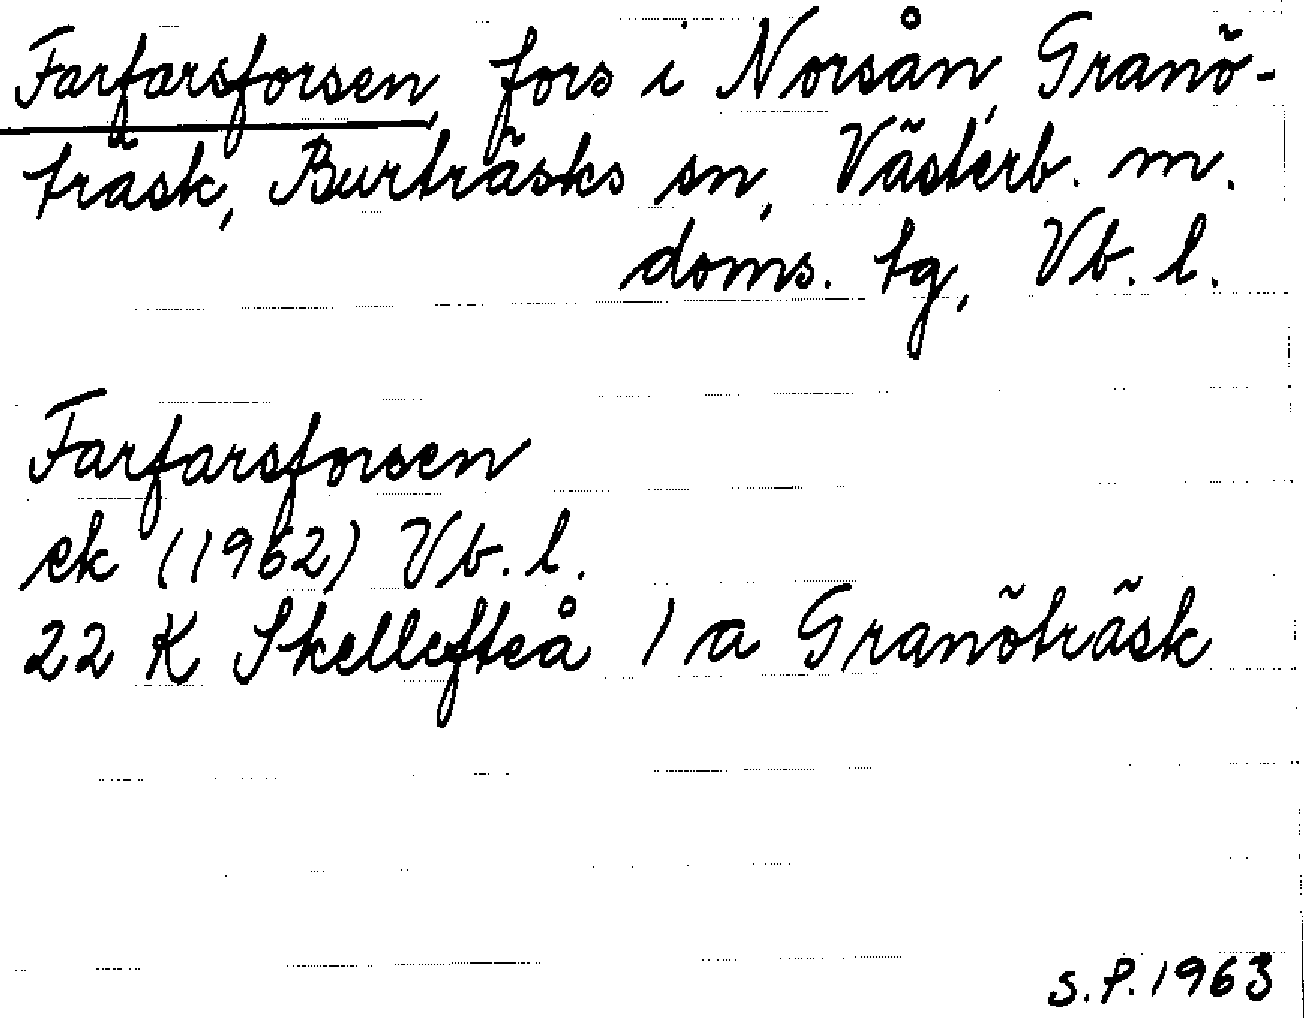 Farfarsforsen, fors i Norsån, Granö-
träsk, Burträsks sn, Västerb. m.
doms. tg, Vb. l.
Farfarsforsen
ek (1962) Vb. l.
22 K Skellefteå 1 a Granöträsk
S.P. 1963